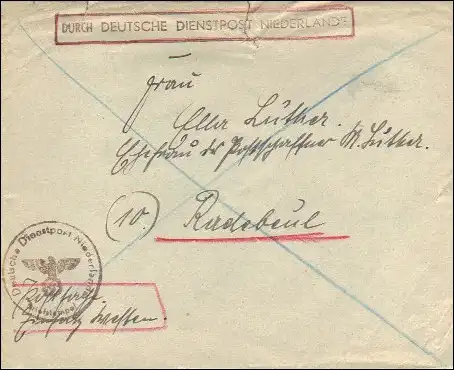 DURCH DEUTSCHE DIENSTPOST NIEDERLANDE
Frau
Ella Luther.
Ehefrau des Postschaffner M. Luther.
(10) Radebeul
Deutsche Dienstpost Niederlande
Briefstempel
Einsatz Westen.